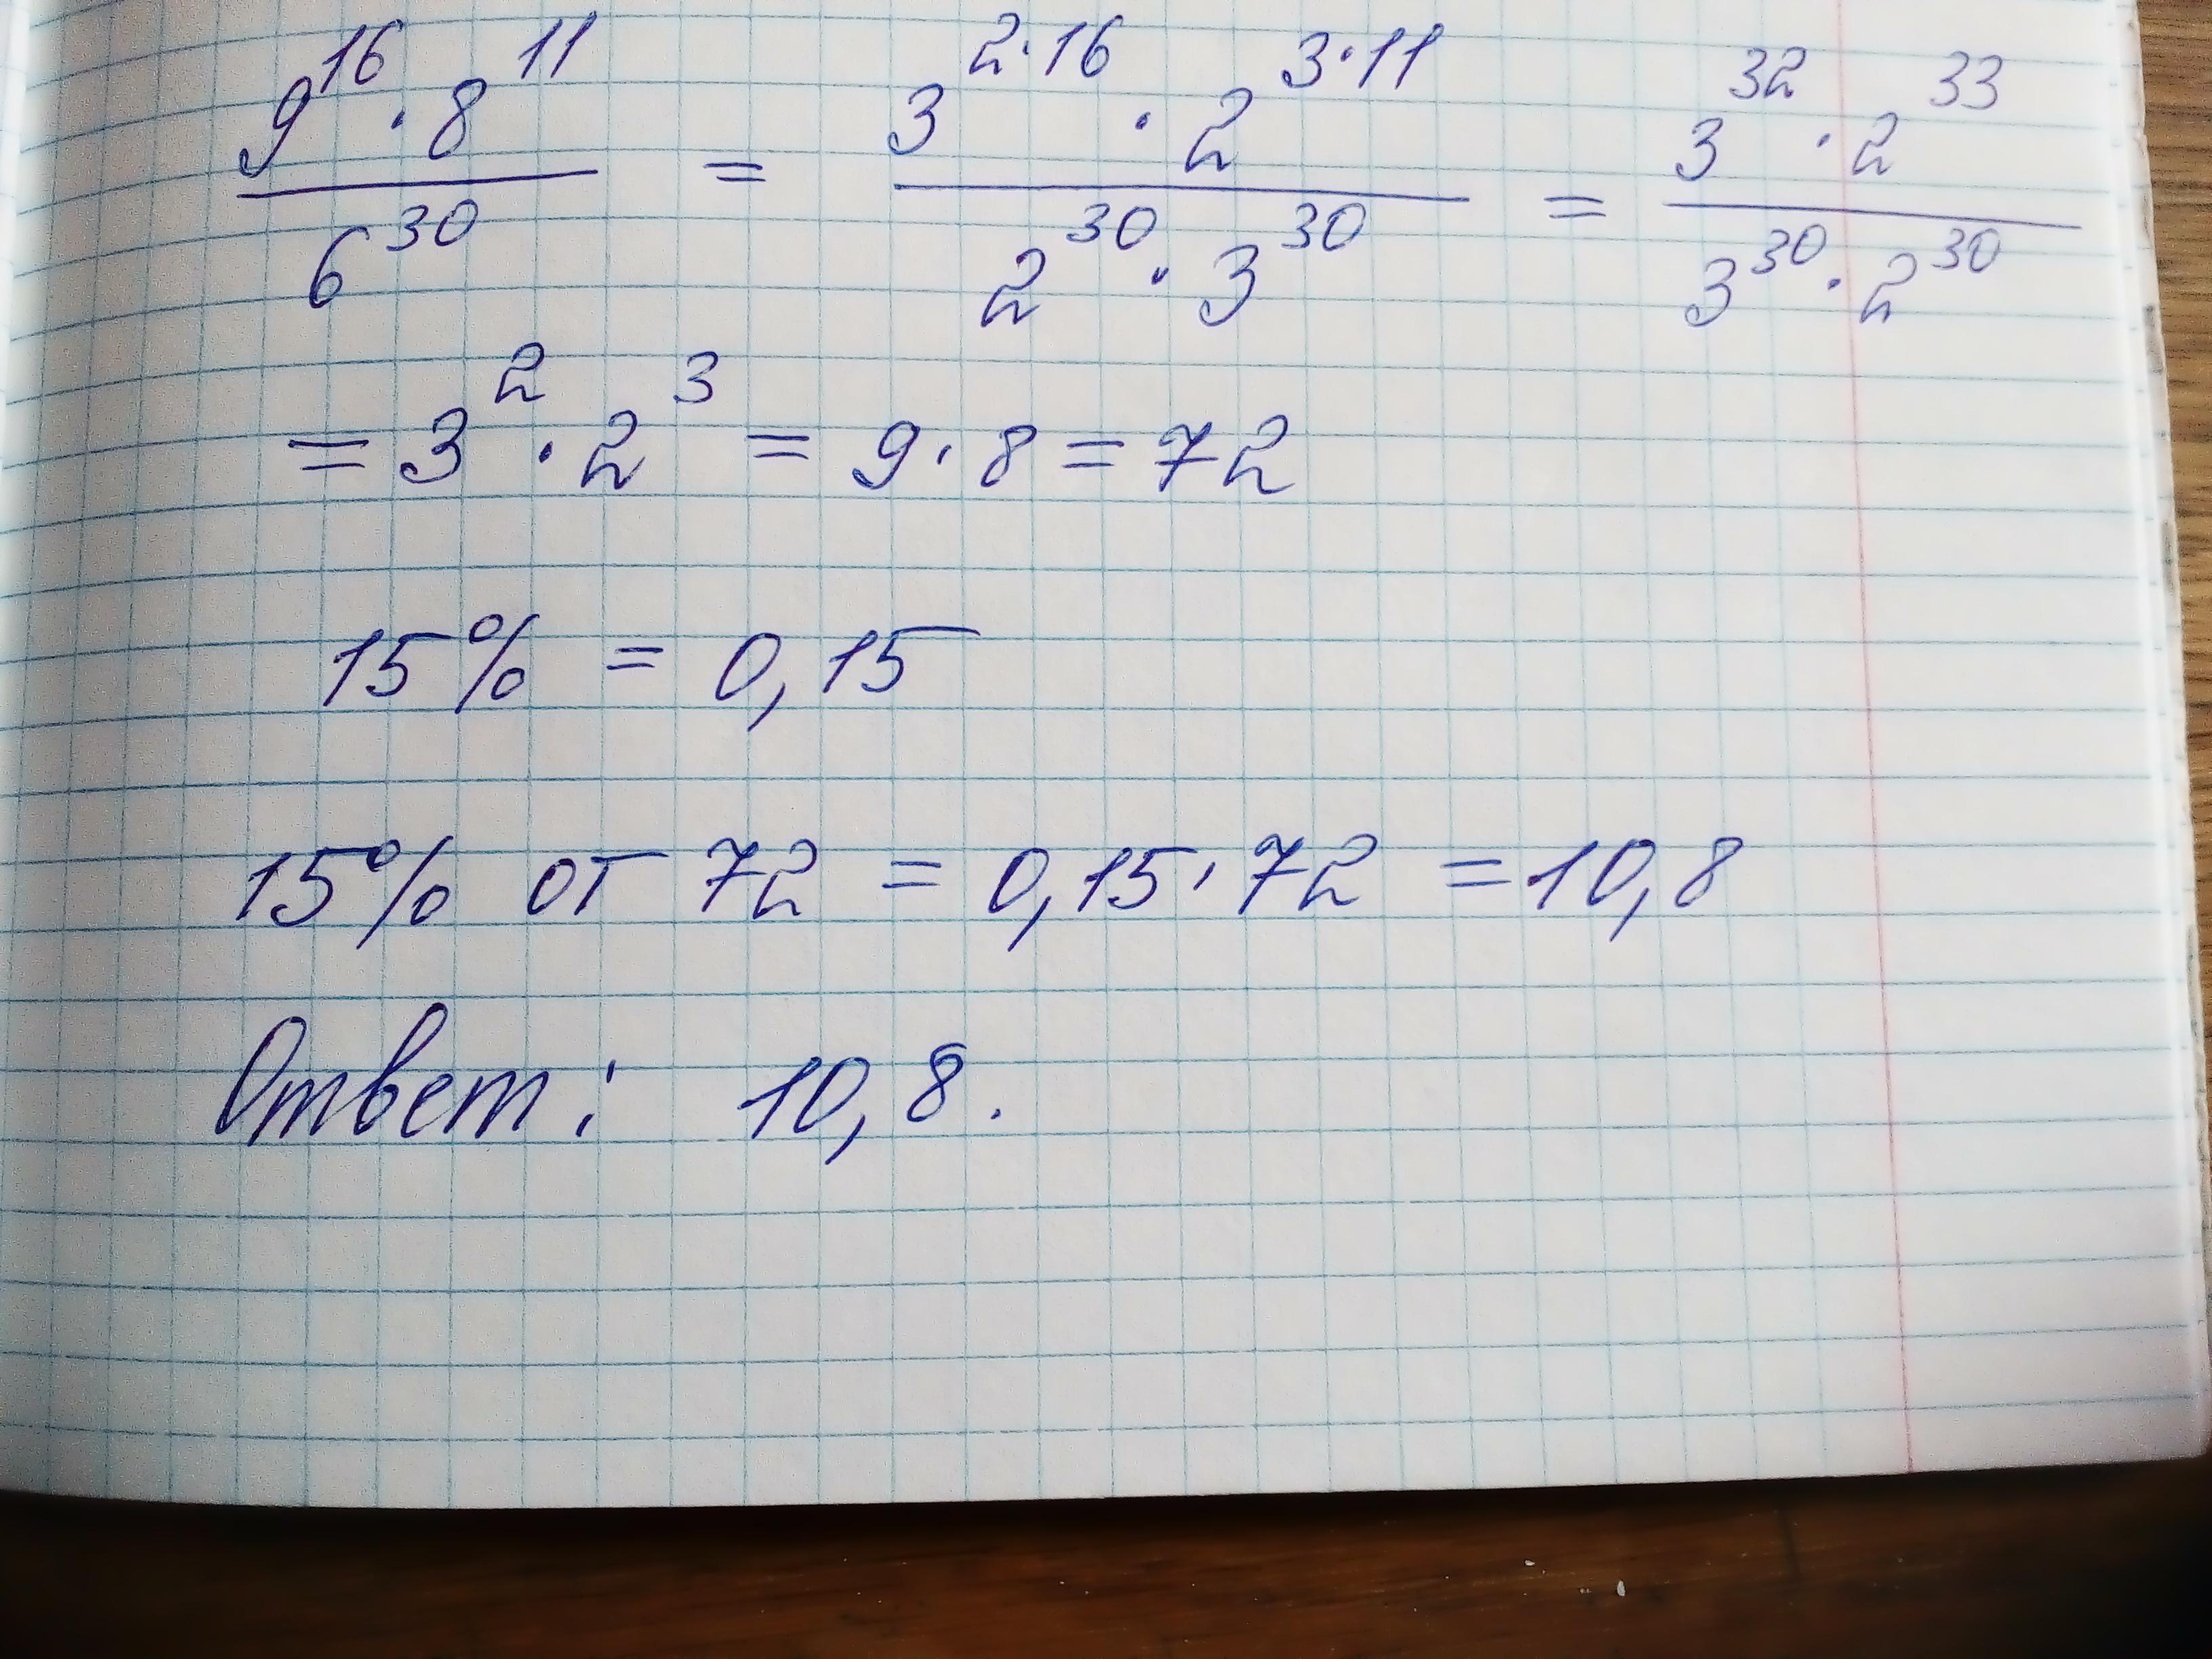 9^16 · 8^11 / 6^30 = 3^2·16 · 2^3·11 / 2^30 · 3^30 = 3^32 · 2^33 / 3^30 · 2^30
= 3^2 · 2^3 = 9 · 8 = 72
15% = 0,15
15% от 72 = 0,15 · 72 = 10,8
Ответ: 10,8.